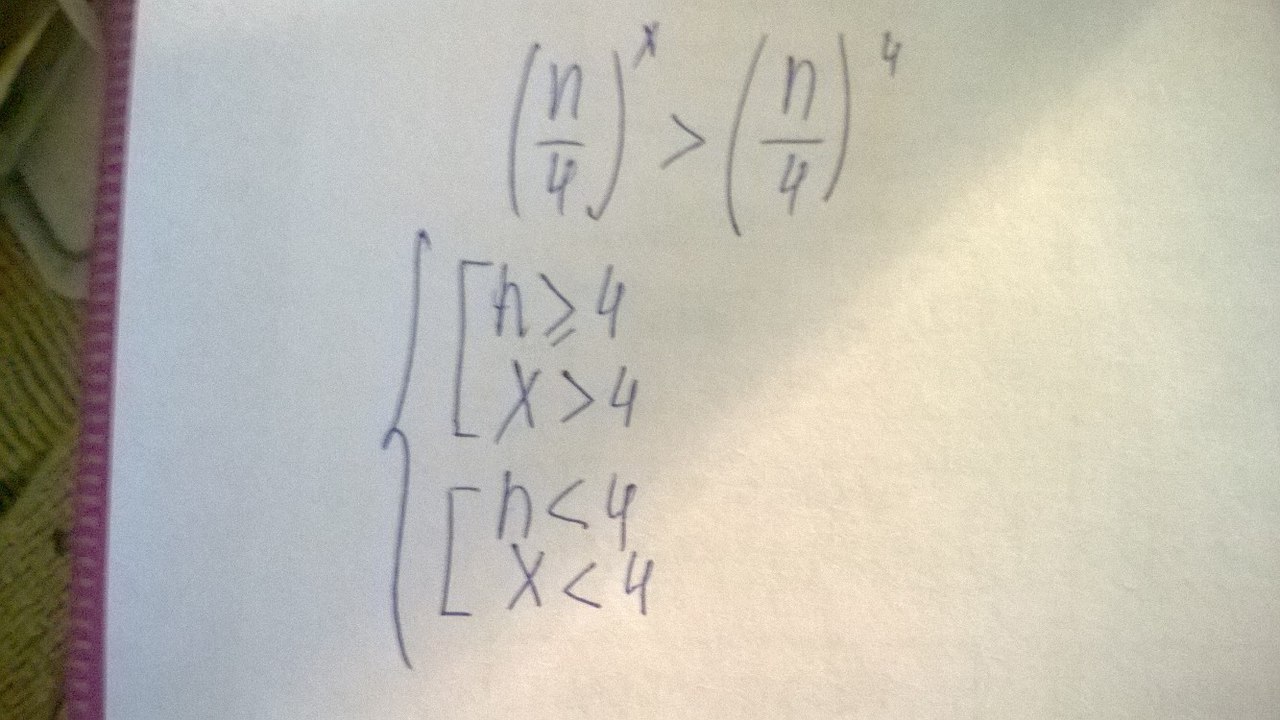 (n/4)^x > (n/4)^4
{ [ n ≥ 4
x > 4
[ n < 4
x < 4